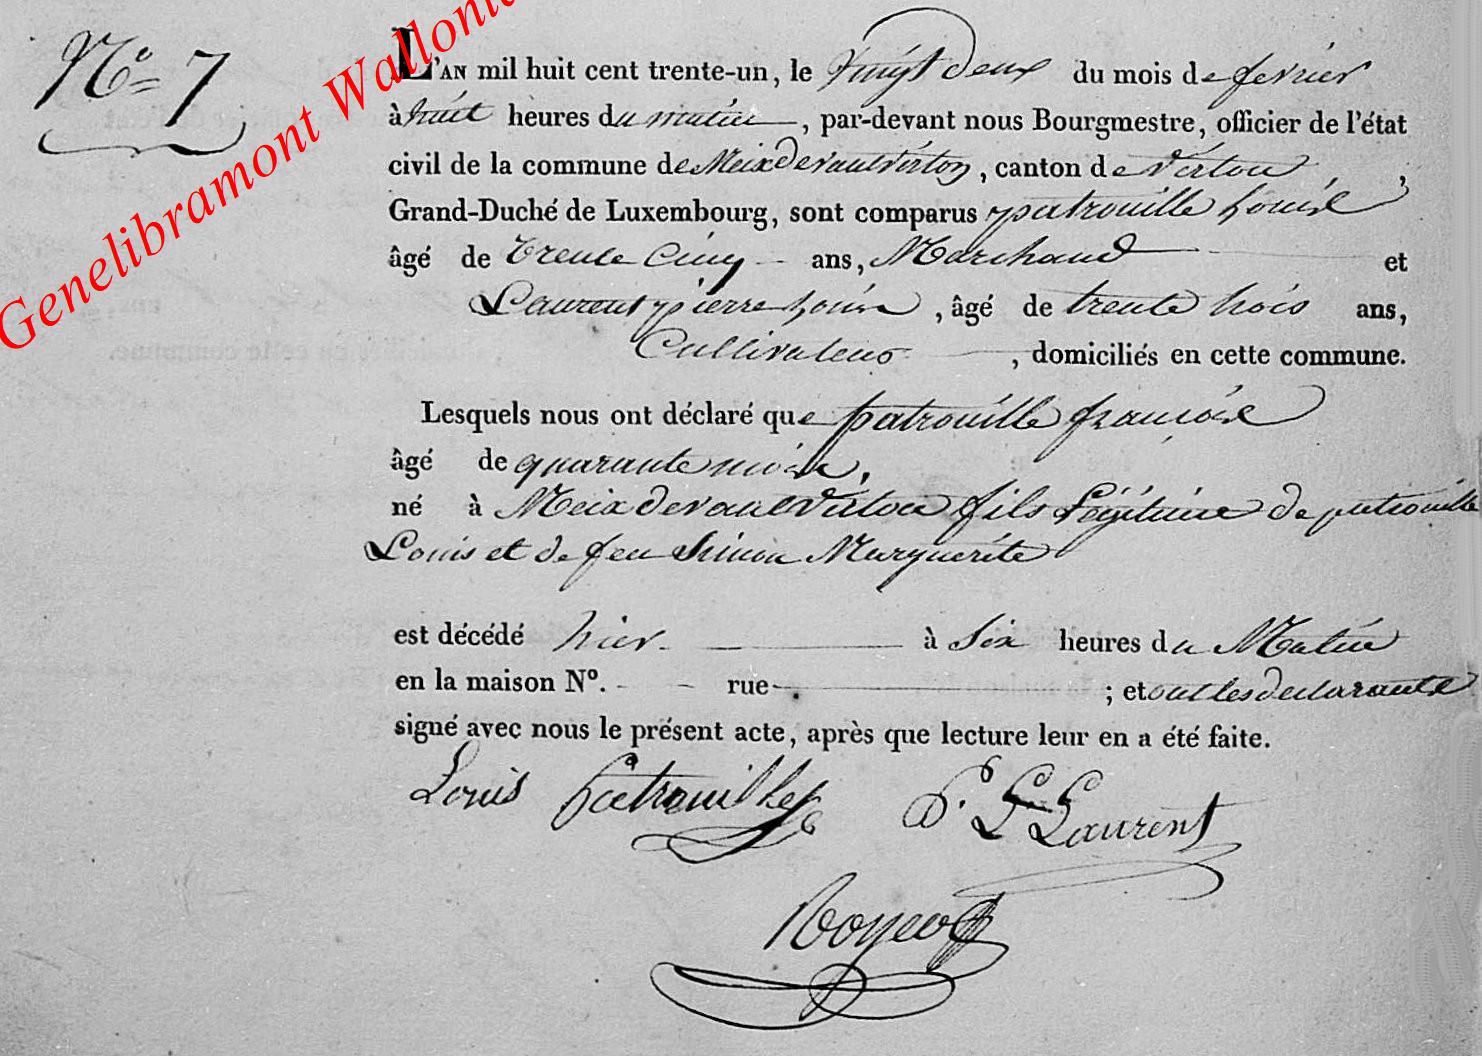 Genelibramont Wallonie
N° 7
L'AN mil huit cent trente-un, le vingt deux du mois de fevrier
à huit heures du matin, par-devant nous Bourgmestre, officier de l'état
civil de la commune de Meix devant virton, canton de Virton,
Grand-Duché de Luxembourg, sont comparus patrouille Louis
âgé de trente cinq ans, Marchand et
Laurent pierre Louis, âgé de trente trois ans,
Cultivateur, domiciliés en cette commune.
Lesquels nous ont déclaré que patrouille françois
âgé de quarante
né à Meix devant Virton fils Légitime de patrouille
Louis et de feu Simon Marguerite
est décédé hier à six heures du Matin
en la maison N°. rue ; et ont les declarants
signé avec nous le présent acte, après que lecture leur en a été faite.
Louis Patrouille P. L Laurent